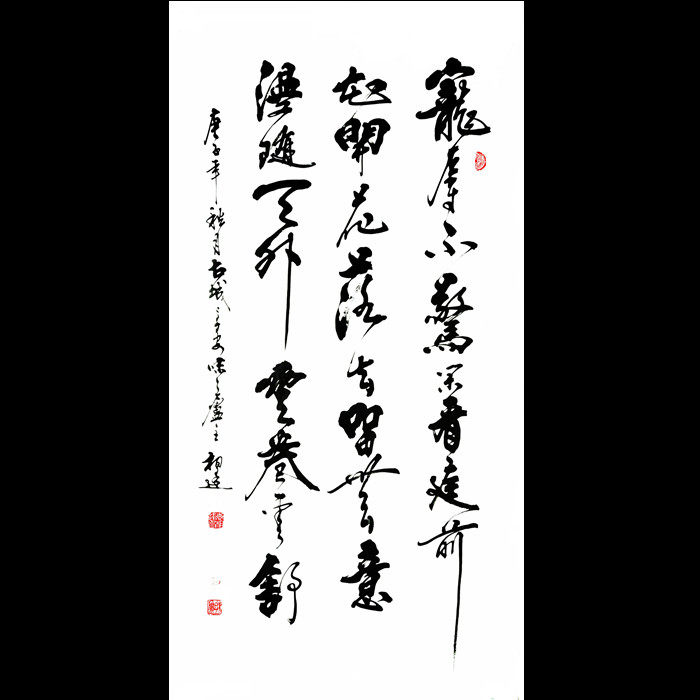 寵辱不驚閑看庭前
花開花落去留無意
漫隨天外雲卷雲舒
庚子年秋月古城主